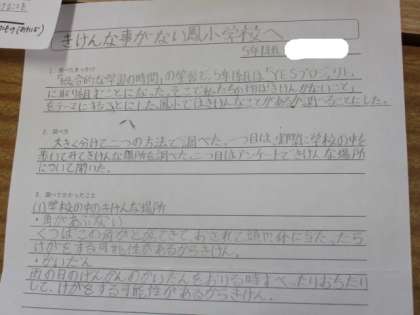 きけんな事がない鳳小学校へ
5年1組
1. 調べたきっかけ
「総合的な学習の時間」の学習で、5年1組は「YESプロジェクト」
に取り組むことになった。そこで私たちの班は「きけんがないこと」
をテーマにすることにした。鳳小ではきけんなことがあるか調べることにした。
2. 調べ方
大きく分けて二つの方法で調べた。一つ目は、実際に学校の中を
歩いてみてきけんな場所を調べた。二つ目はアンケートできけんな場所
について聞いた。
3. 調べて分かったこと
(1)学校の中のきけんな場所
・角があぶない
けがをする可能性があるからきけん。
・かいだん
雨の日のげんかんのかいだんをおりる時すべったりおちたり
して、けがをする可能性があるからきけん。